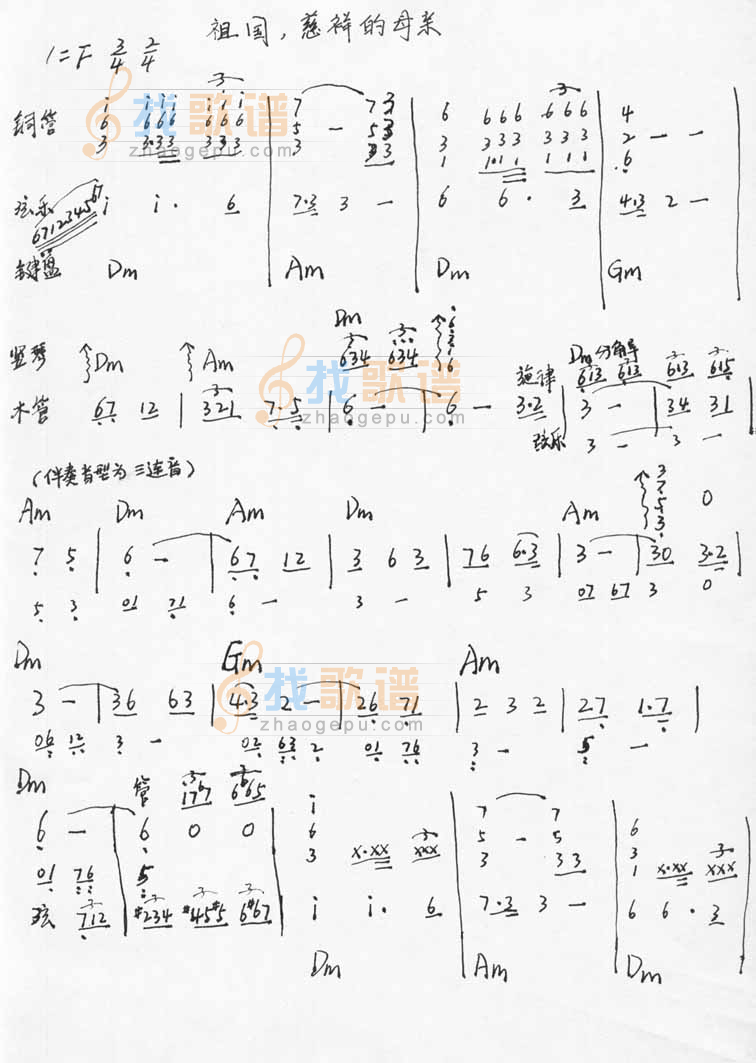 祖国，慈祥的母亲
1=F 3/4 2/4
铜管
i iii iii 7 73 6 666 666 4
6 666 666 5 — 53 3 333 333 2 — —
3 3·33 333 3 33 1 1·11 111 6
弦乐 671234567 i i· 6 7·3 3 — 6 6· 3 4·3 2 —
键盘 Dm Am Dm Gm
竖琴 Dm Am Dm 634 634 Dm 分解 613 613 613 615
木管 67 12 | 321 7·5 | 6 — | 6 — 旋律 3·2 | 3 — | 34 31 |
弦乐 3 — 3 —
(伴奏音型为三连音)
Am Dm Am Dm Am 0
7 5 | 6 — | 67 12 | 3 6 3 | 76 6·3 | 3 — | 30 3·2 |
5 3 01 71 6 — 3 — 5 3 07 67 3 0
Dm Gm Am
3 — | 36 63 | 4·3 2 — | 26 71 | 2 3 2 | 27 1·7 |
06 12 3 — 02 63 2 01 76 3 — 5 —
Dm 管 176 665
6 — | 6 0 0
01 76 5
弦 712 #234 #45#5 6#67
i 7 7 6
6 5 — 5 3
3 x·xx xxx 3 33 1 x·xx xxx
i i· 6 7·3 3 — 6 6· 3
Dm Am Dm
找歌谱
zhaogepu.com
找歌谱
zhaogepu.com
找歌谱
zhaogepu.com